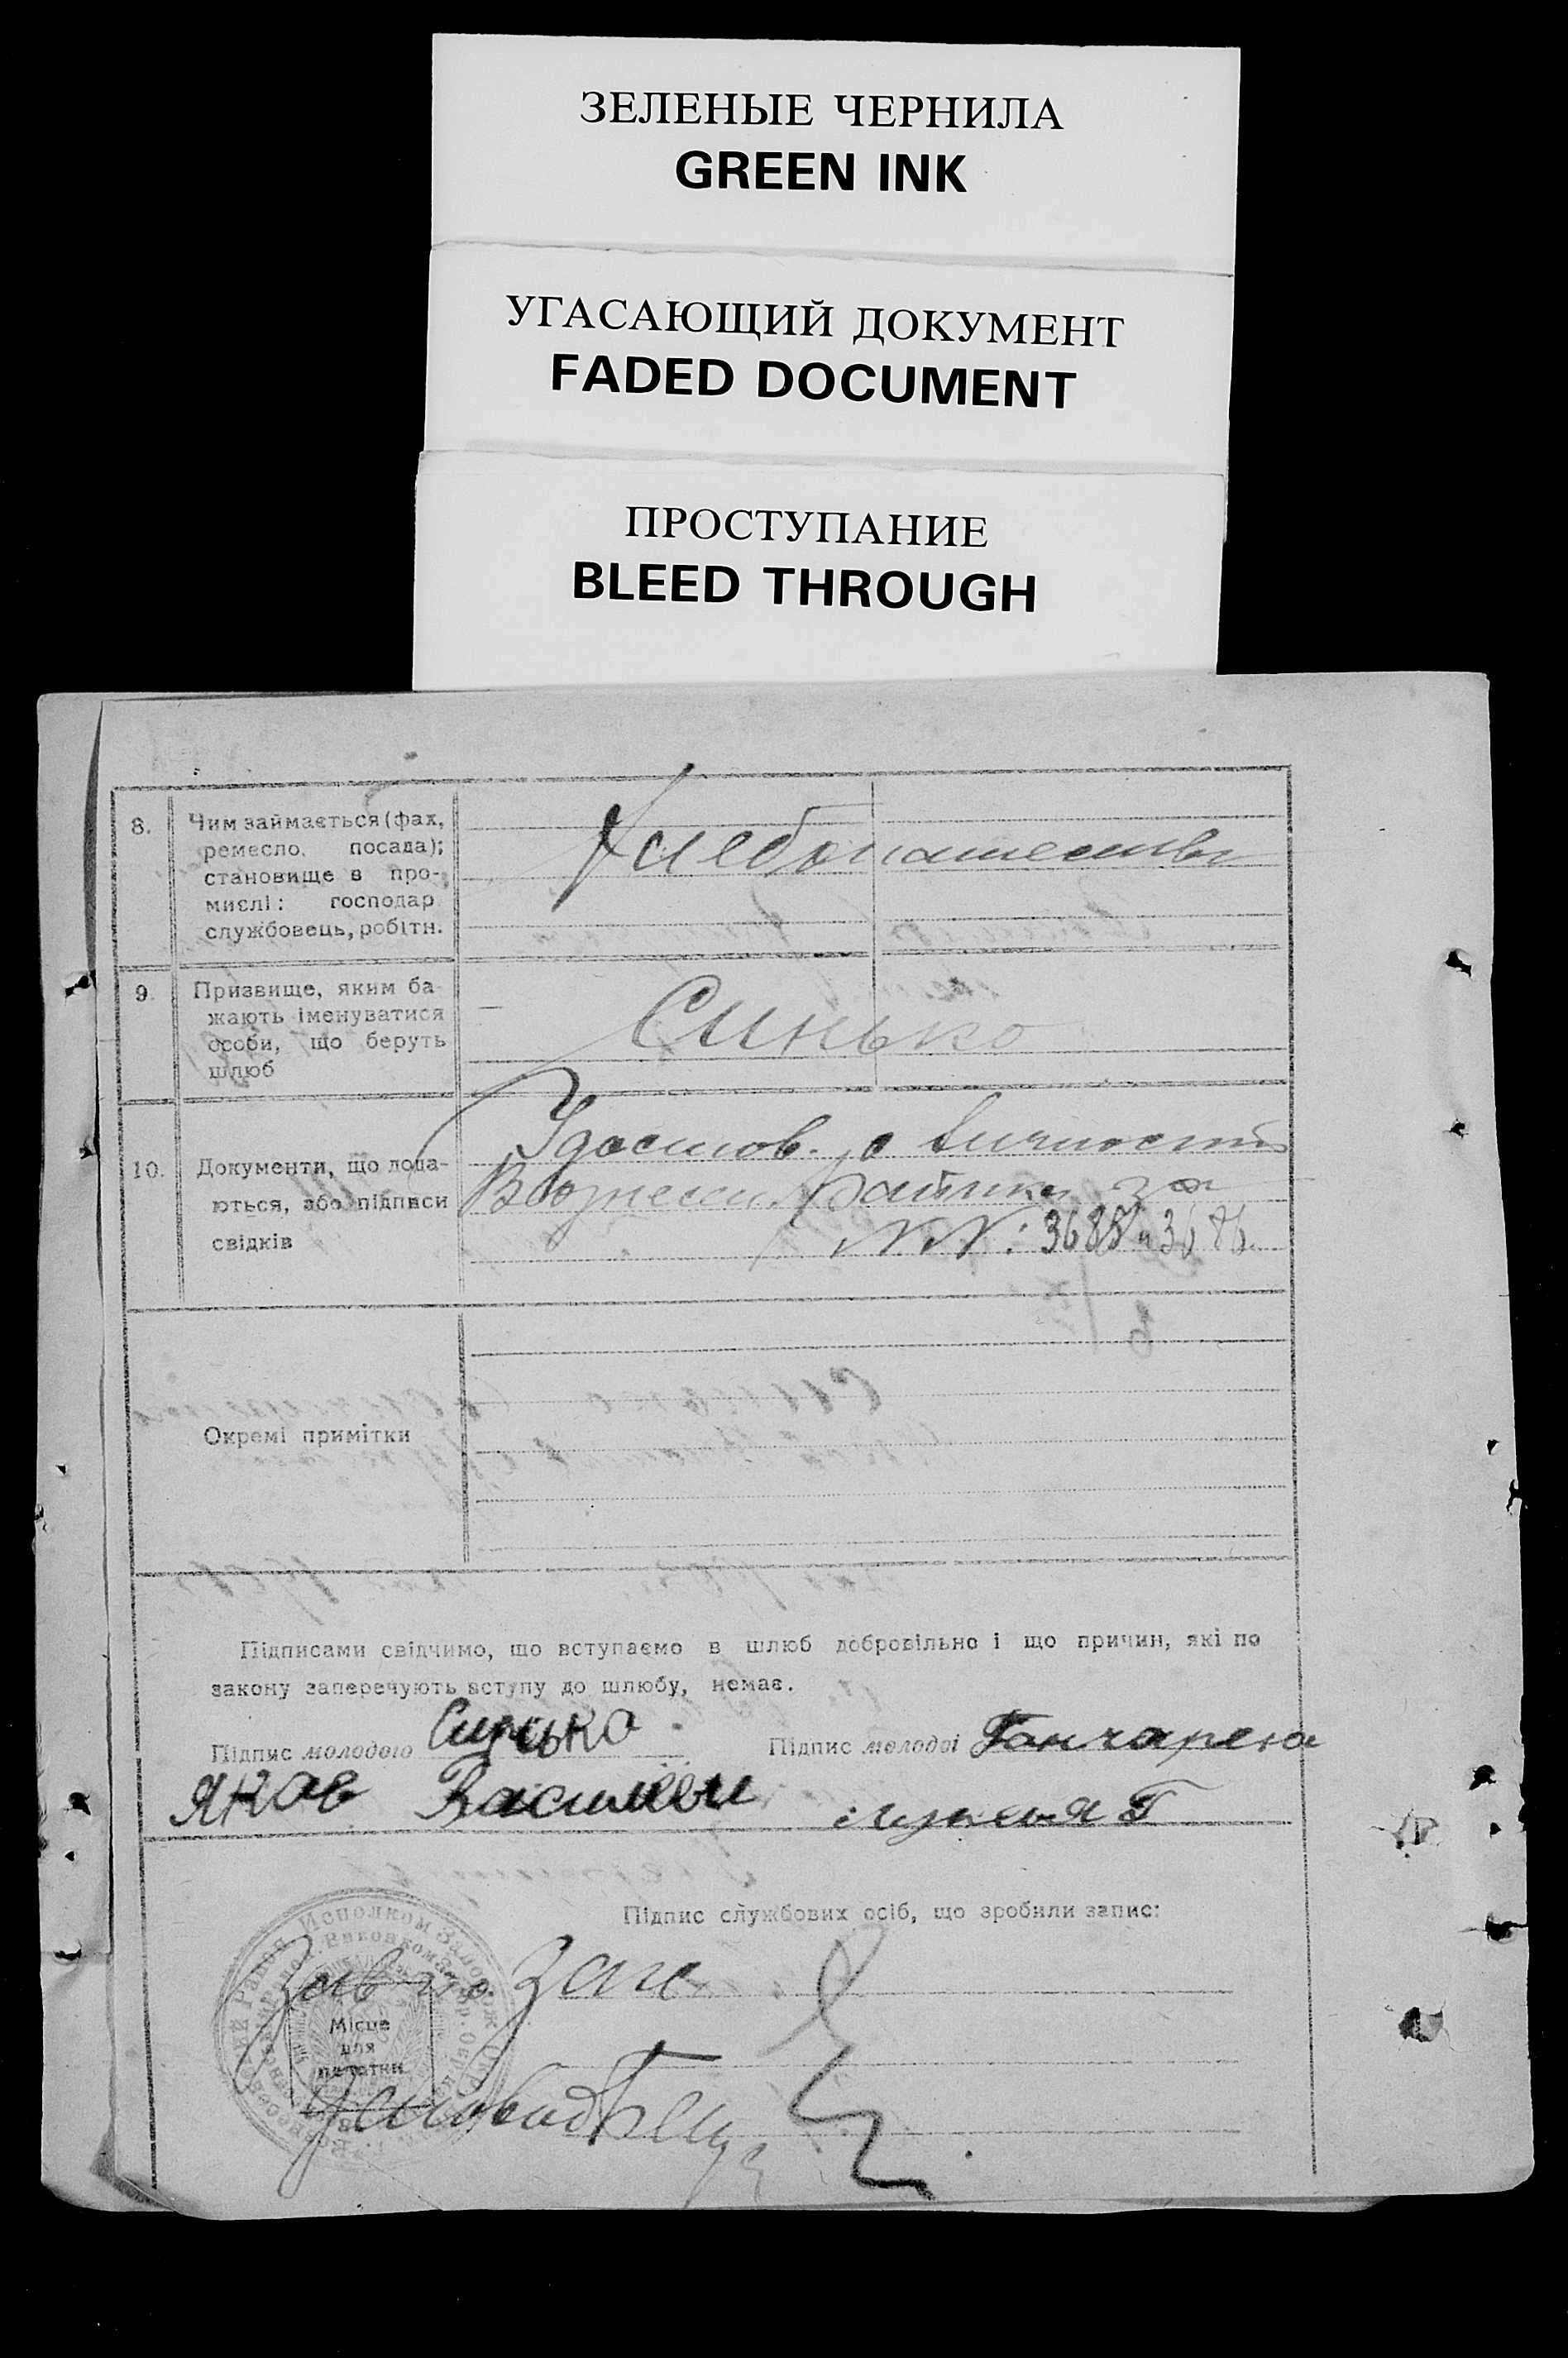 ЗЕЛЕНЫЕ ЧЕРНИЛА
GREEN INK
УГАСАЮЩИЙ ДОКУМЕНТ
FADED DOCUMENT
ПРОСТУПАНИЕ
BLEED THROUGH
8. Чим займається (фах,
ремесло, посада);
становище в про-
мислі: господар
службовець, робітн.
Хлебопашество
9. Призвище, яким ба-
жають іменуватися
особи, що беруть
шлюб
Синько
10. Документи, що дода-
ються, або підписи
свідків
Удостов. о личности
за
NN: 3685 и 3686
Окремі примітки
Підписами свідчимо, що вступаємо в шлюб добровільно і що причин, які по
закону заперечують вступу до шлюбу, немає.
Підпис молодого Синько
Яков
Підпис молодої Гончарена
Підпис службових осіб, що зробили запис:
Зав по Загс
Місце
для
печатки